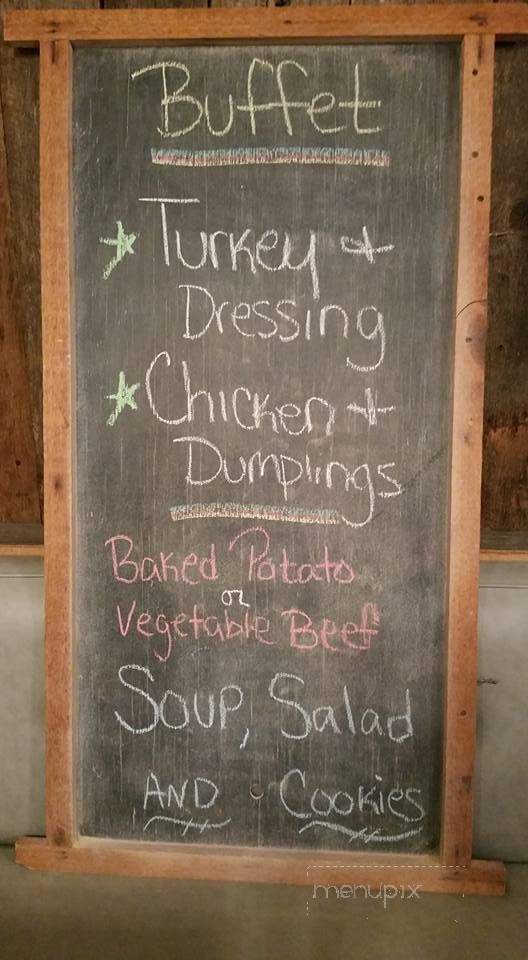 Buffet
Turkey +
Dressing
Chicken +
Dumplings
Baked Potato
or
Vegetable Beef
Soup, Salad
AND Cookies
menupix